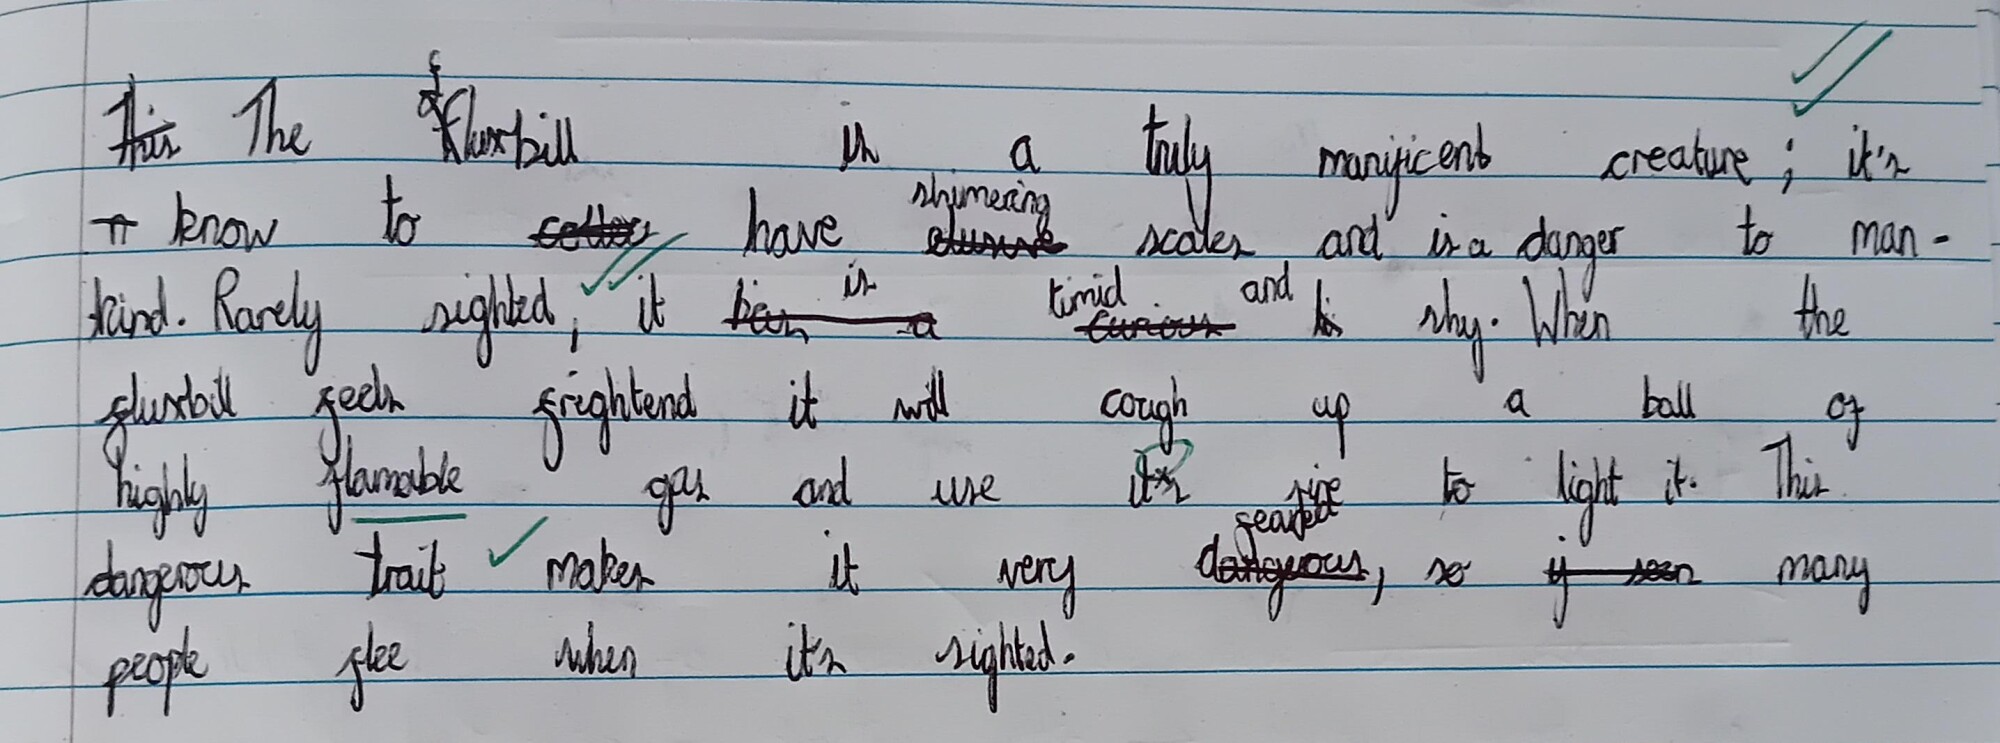 This The fluxbill is a truly manificent creature; it's
know to have shimering scales and is a danger to man-
kind. Rarely sighted, it is timid and shy. When the
fluxbill feels frightend it will cough up a ball of
highly flamable gas and use it's fire to light it. This
dangerous trait makes it very feared dangerous, so if seen many
people flee when it's sighted.